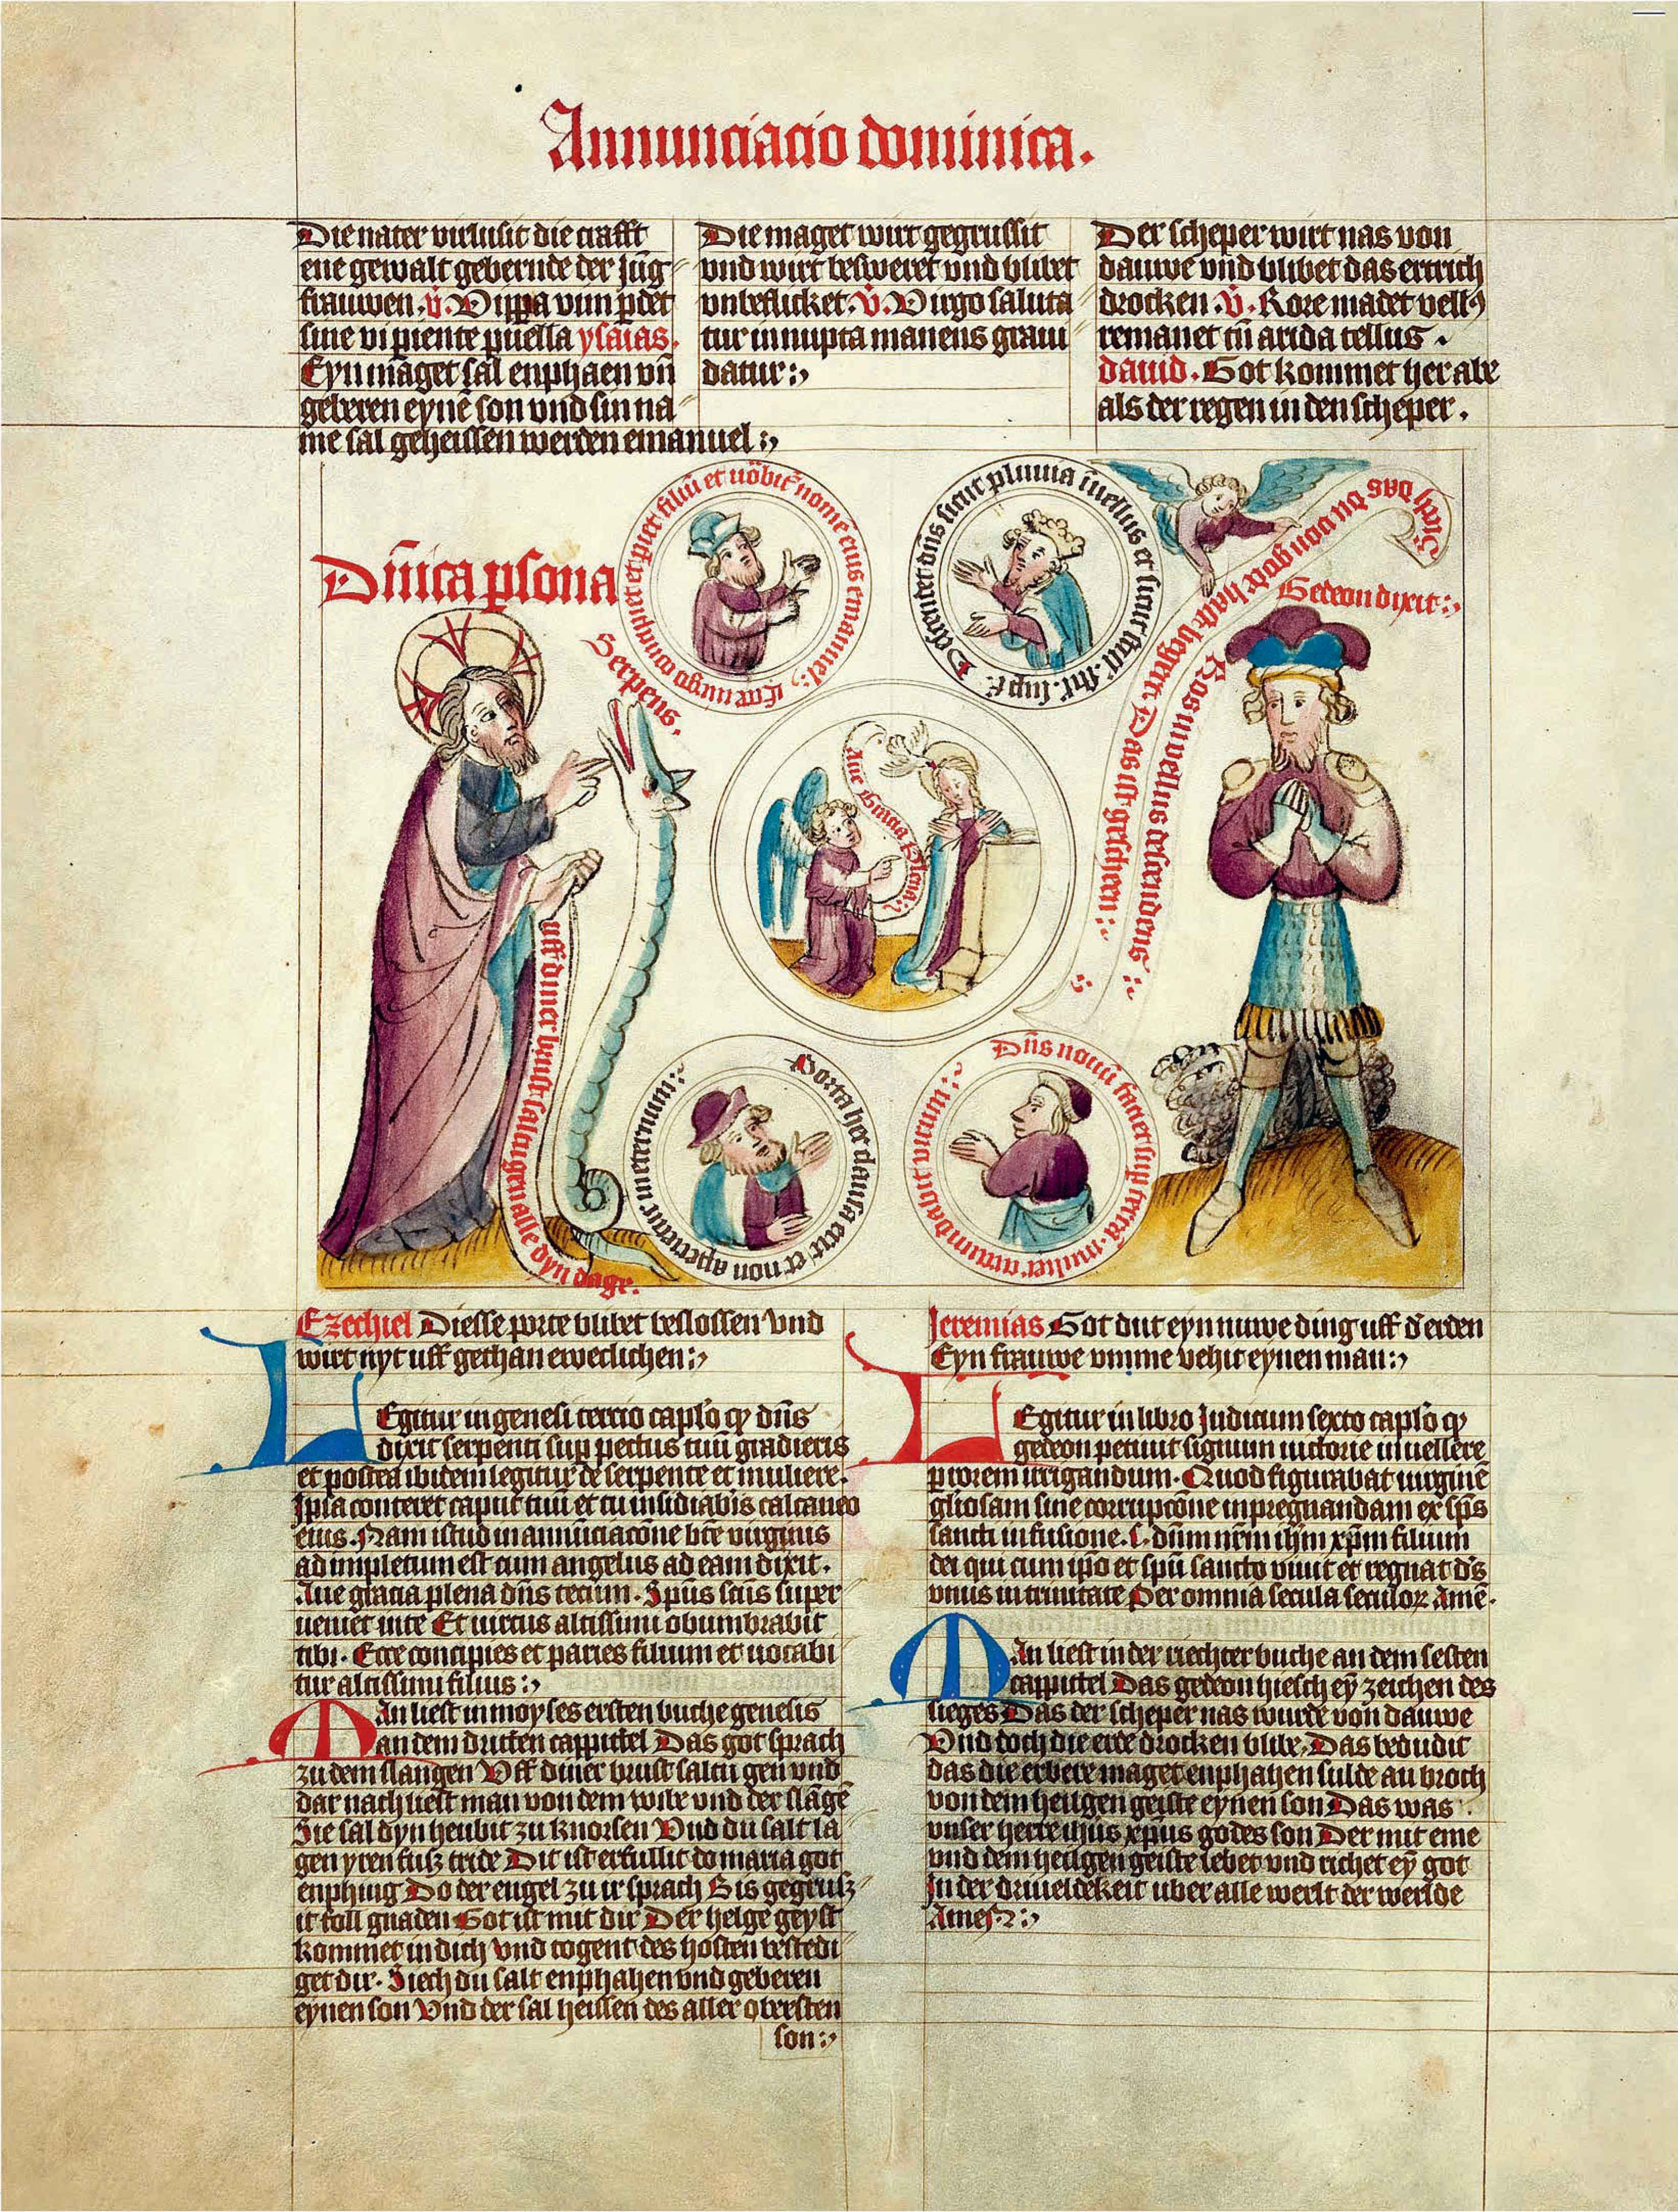 Annunciacio dominica.
Die nater virlusit die crafft
ene gewalt gebernde der jūg
frauwen. v̄. Vippa vim pdet
sine vi piente puella ysaias.
Eyn maget sal enphaen vn̄
geberen eynē son vnd sin na
me sal geheissen werden emanuel
Die maget wirt gegrussit
vnd wirt besweret vnd blibet
vnbeflicket. v̄. Virgo saluta
tur innupta manens graui
datur
Der scheper wirt nas von
dauwe vnd blibet das ertrich
drocken. v̄. Rore madet vellꝰ
remanet tn̄ arida tellus.
dauid. Got kommet her abe
als der regen in den scheper.
Dn̄ica psona
Serpens.
Ecce uirgo concipiet et pariet filiū et uocabit nomē eius emanuel
Descendet dn̄s sicut pluuia in vellus et sicut
Sich das du von gode hast begert Das ist gescheen
Gedeon dixit
Ros in vellus descendens
Aue Gracia Plena
uff diner brust saltu gen alle dyn dage.
Porta hec clausa erit et non aperietur in eternum
Dn̄s nouū faciet sup terrā. mulier circumdabit virum
Ezechiel Diesse porte blibet beslossen vnd
wirt nyt uff gethan eweclichen
Jeremias Got dut eyn nuwe ding uff d̄ erden
Eyn frauwe vmme vehit eynen man
LEgitur in genesi tercio caplo qp dn̄s
dixit serpenti sup pectus tuū gradieris
et postea ibidem legitur de serpente et muliere.
Ipsa conteret caput tuū et tu insidiabis calcaneo
eius. Nam istud in annūciacōne btē virginis
ad impletum est cum angelus ad eam dixit.
Aue gracia plena dn̄s tecum. Spūs scūs super
ueniet in te Et uirtus altissimi obumbrabit
tibi. Ecce concipies et paries filium et uocabi
tur altissimi filius
MAn liest in moyses ersten buche genesis
an dem dritten cappittel Das got sprach
zu dem slangen Vff diner brust saltu gen vnd
dar nach liest man von dem wibe vnd der slāgē
Sie sal dyn heubit zu knorsen Vnd du salt la
gen yren fusz tride Dit ist erfullit do maria got
enphing Do der engel zu ir sprach Bis gegrusz
it foll gnaden Got ist mit dir Der helge geyst
kommet in dich vnd togent des hosten bestedi
get dir. Siech du salt enphahen vnd geberen
eynen son Vnd der sal heissen des aller obersten
son
LEgitur in libro Judicum sexto caplo qp
gedeon petiuit signum victorie in uellere
pluuia irrigandum. Quod figurabat uirginē
gl̄iosam sine corrupcōne inpregnandam ex sp̄s
sancti infusione. s. dūm nr̄m ih̄m xp̄m filium
dei qui cum ipo et spū sancto viuit et regnat d̄s
vnus in trinitate Per omnia secula seculoꝝ Amē.
MAn liest in der riechter buche an dem sesten
cappittel Das gedeon hiesch eȳ zeichen des
sieges Das der scheper nas wurde von dauwe
Vnd doch die erde drocken blibe, Das bedudit
das die erbere maget enphahen sulde an broch
von dem heilgen geiste eynen son Das was
vnser herre ihūs xp̄us godes son Der mit eme
vnd dem heilgen geiste lebet vnd richet eȳ got
In der driueldekeit uber alle werlt der werlde
Amen